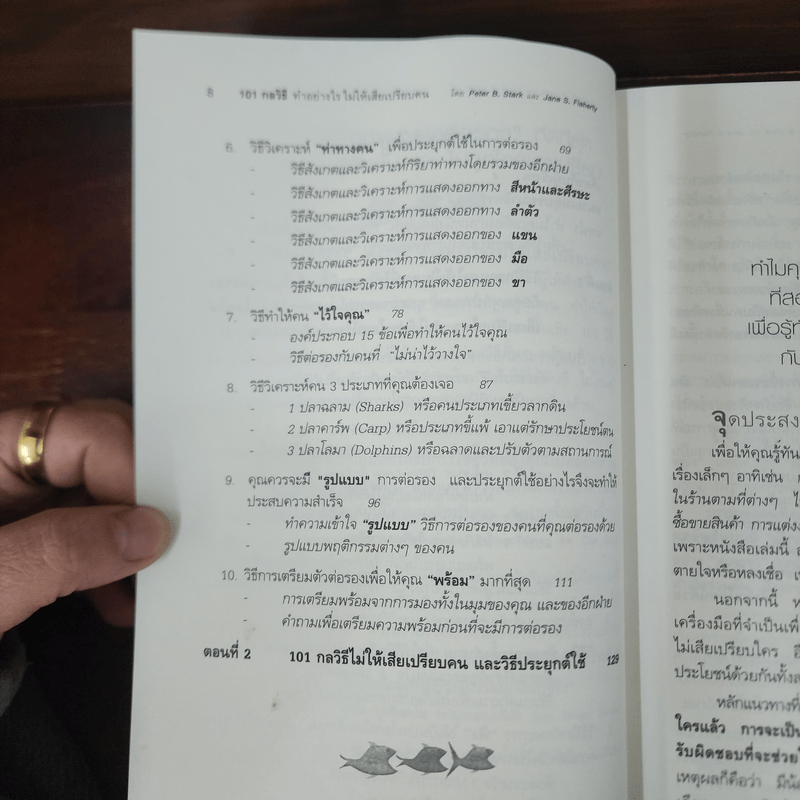 8 101 กลวิธี ทำอย่างไร ไม่ให้เสียเปรียบคน โดย Peter B. Stark และ Jane S. Flaherty
6. วิธีวิเคราะห์ "ท่าทางคน" เพื่อประยุกต์ใช้ในการต่อรอง 69
- วิธีสังเกตและวิเคราะห์กิริยาท่าทางโดยรวมของอีกฝ่าย
- วิธีสังเกตและวิเคราะห์การแสดงออกทาง สีหน้าและศีรษะ
- วิธีสังเกตและวิเคราะห์การแสดงออกทาง ลำตัว
- วิธีสังเกตและวิเคราะห์การแสดงออกของ แขน
- วิธีสังเกตและวิเคราะห์การแสดงออกของ มือ
- วิธีสังเกตและวิเคราะห์การแสดงออกของ ขา
7. วิธีทำให้คน "ไว้ใจคุณ" 78
- องค์ประกอบ 15 ข้อเพื่อทำให้คนไว้ใจคุณ
- วิธีต่อรองกับคนที่ "ไม่น่าไว้วางใจ"
8. วิธีวิเคราะห์คน 3 ประเภทที่คุณต้องเจอ 87
- 1 ปลาฉลาม (Sharks) หรือคนประเภทเขี้ยวลากดิน
- 2 ปลาคาร์พ (Carp) หรือประเภทขี้แพ้ เอาแต่รักษาประโยชน์ตน
- 3 ปลาโลมา (Dolphins) หรือฉลาดและปรับตัวตามสถานการณ์
9. คุณควรจะมี "รูปแบบ" การต่อรอง และประยุกต์ใช้อย่างไรจึงจะทำให้
ประสบความสำเร็จ 96
- ทำความเข้าใจ "รูปแบบ" วิธีการต่อรองของคนที่คุณต่อรองด้วย
- รูปแบบพฤติกรรมต่างๆ ของคน
10. วิธีการเตรียมตัวต่อรองเพื่อให้คุณ "พร้อม" มากที่สุด 111
- การเตรียมพร้อมจากการมองทั้งในมุมของคุณ และของอีกฝ่าย
- คำถามเพื่อเตรียมความพร้อมก่อนที่จะมีการต่อรอง
ตอนที่ 2 101 กลวิธีไม่ให้เสียเปรียบคน และวิธีประยุกต์ใช้ 129
ทำไมคุ
ที่สอ
เพื่อรู้ทั
กับ
จุดประสง
เพื่อให้คุณรู้ทัน
เรื่องเล็กๆ อาทิเช่น
ในร้านตามที่ต่างๆ
ซื้อขายสินค้า การแต่งง
เพราะหนังสือเล่มนี้
ตายใจหรือหลงเชื่อ
นอกจากนี้
เครื่องมือที่จำเป็นเพื่
ไม่เสียเปรียบใคร
ประโยชน์ด้วยกันทั้งส
หลักแนวทางที่
ใครแล้ว การจะเป็น
รับผิดชอบที่จะช่วยใ
เหตุผลก็คือว่า มีนั